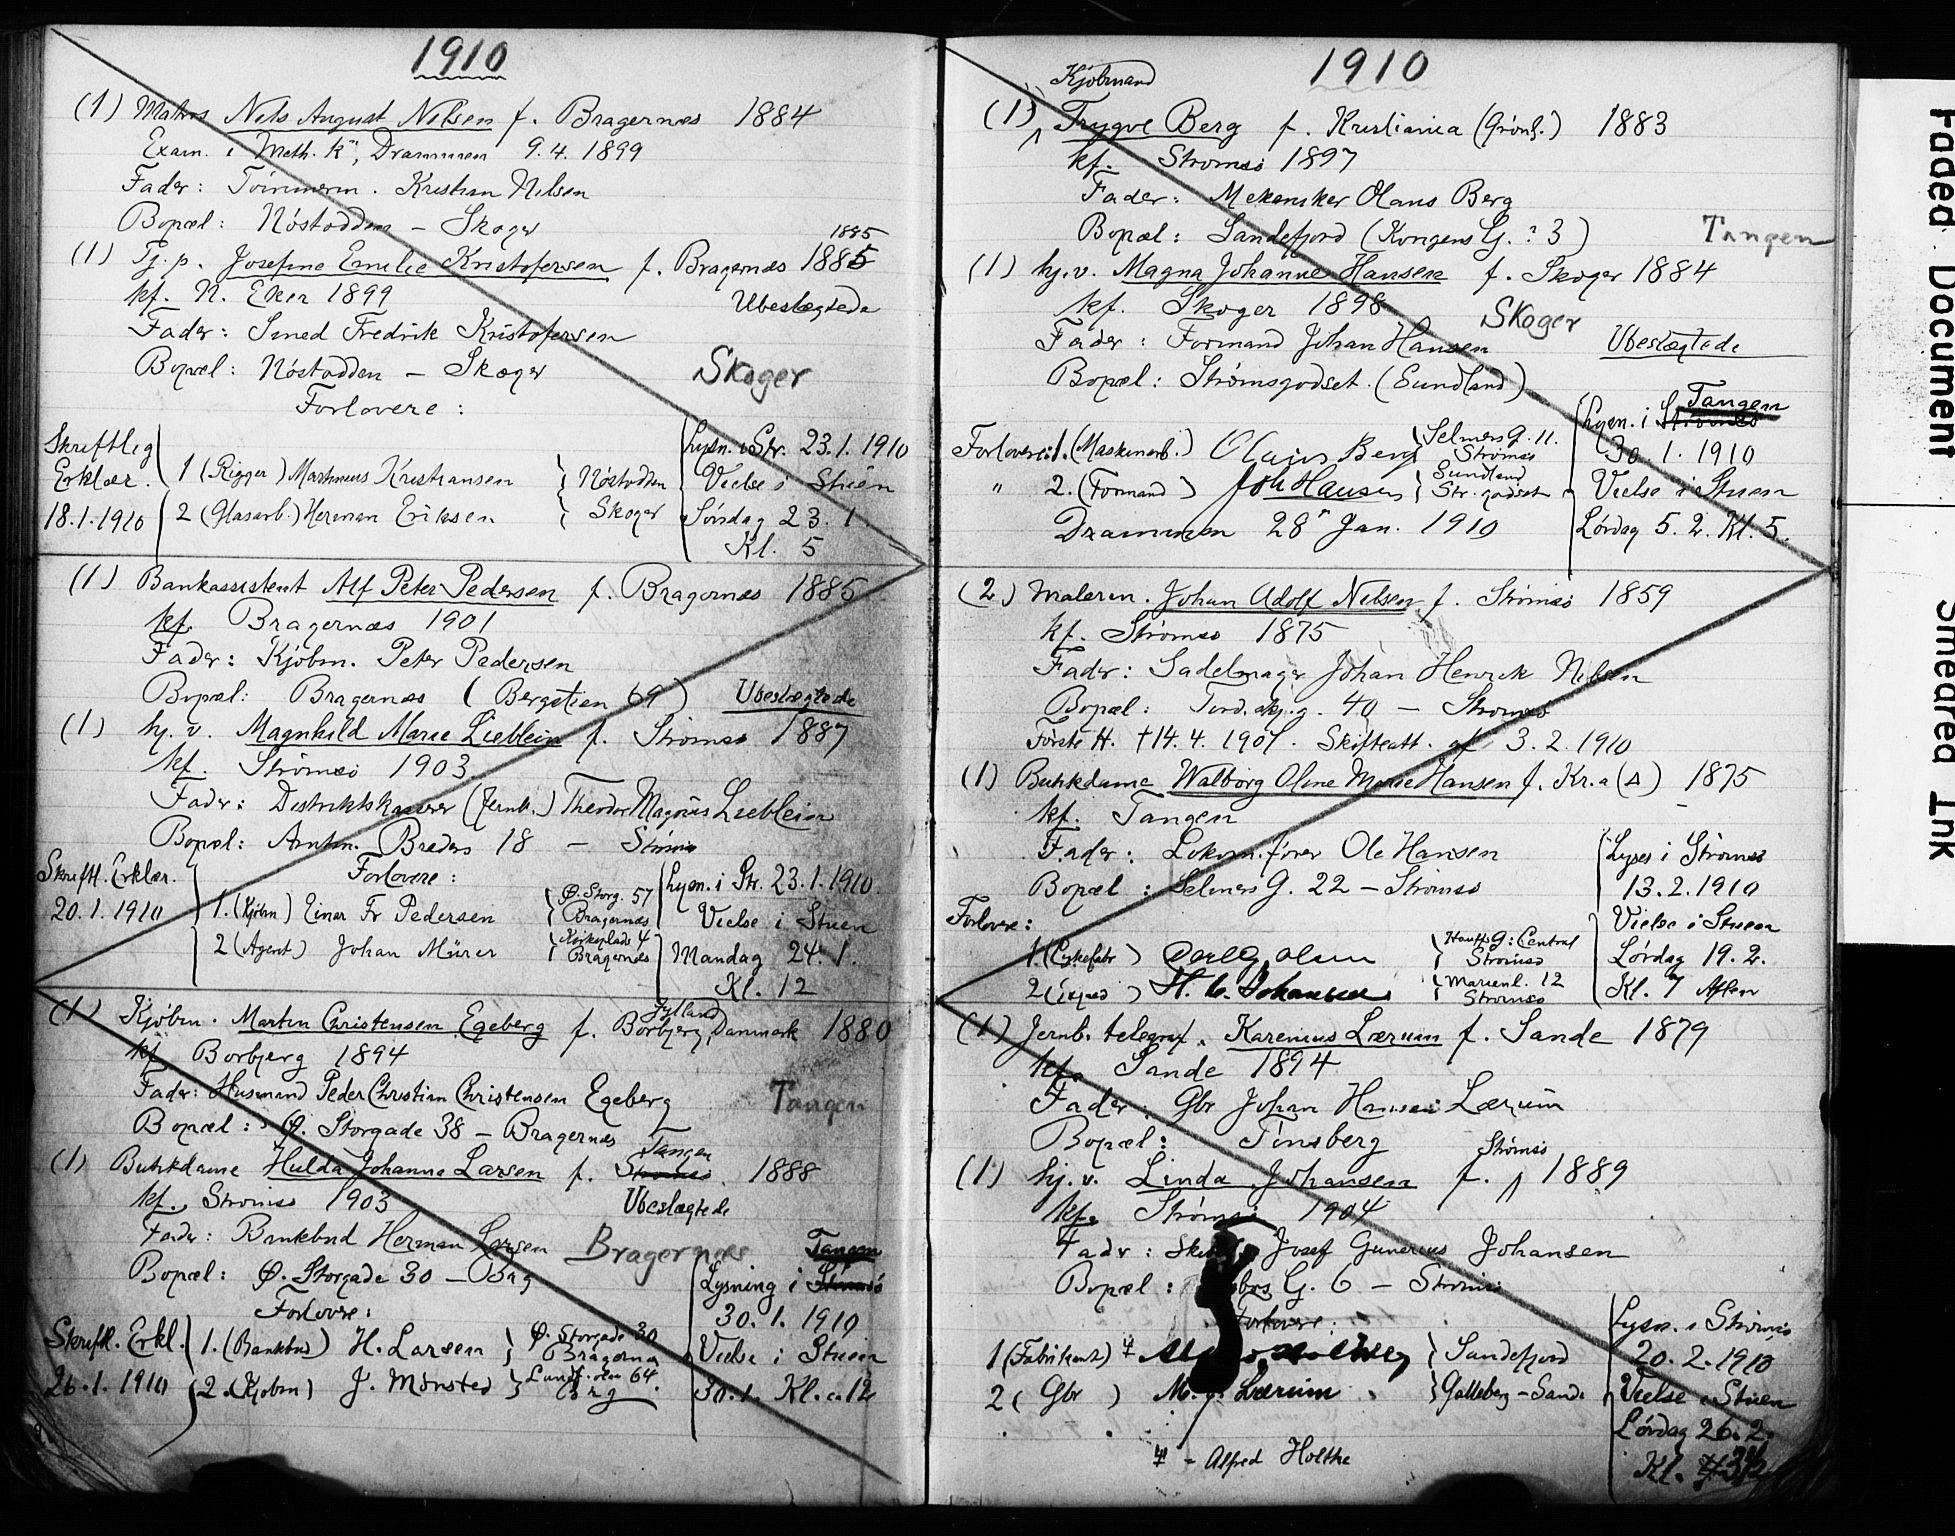 1910
(1) Matros Nils August Nilsen f. Bragernæs 1884
Exam. i Meth. K., Drammen 9.4. 1899
Fader: Tömmerm. Kristian Nilsen
Bopæl: Nöstodden – Skoger
1885
(1) Tj.p. Josefine Emilie Kristofersen f. Bragernæs 1885
kf. N. Eker 1899
Ubeslægtede
Fader: Smed Fredrik Kristofersen
Bopæl: Nöstodden – Skoger
Skoger
Forlovere:
Skriftlig
Erklær.
18.1.1910
1 (Rigger) Martinius Kristiansen } Nöstodden
2 (Glasarb.) Herman Eriksen } Skoger
Lysn. i Str. 23.1.1910
Vielse i Stuen
Söndag 23.1.
Kl. 5
(1) Bankassistent Alf Peter Pedersen f. Bragernæs 1885
kf. Bragernæs 1901
Fader: Kjöbm. Peter Pedersen
Bopæl: Bragernæs (Bergstien 69) Ubeslægtede
(1) hj.v. Magnhild Marie Lieblein f. Strömsö 1887
kf. Strömsö 1903
Fader: Distriktskasserer (Jernb.) Theodor Magnus Lieblein
Bopæl: Amtm. Breders 18 – Strömsö
Skriftl. Erklær.
20.1.1910
Forlovere:
1. (Kjöbm) Einar Fr Pedersen } Ø. Storg. 57 Bragernæs
2 (Agent) Johan Mürer } Kirkeplads 4 Bragernæs
Lysn. i Str. 23.1.1910.
Vielse i Stuen
Mandag 24.1.
Kl. 12
Jylland
(1) Kjöbm. Martin Christensen Egeberg f. Borbjerg, Danmark 1880
kf Borbjerg 1894
Fader: Husmand Peder Christian Christensen Egeberg
Tangen
Bopæl: Ø. Storgade 38 – Bragernæs
Tangen
(1) Butikdame Hulda Johanne Larsen f. Strömsö. 1888
kf. Strömsö 1903
Ubeslægtede
Fader: Bankbud Herman Larsen
Bragernæs
Bopæl: Ø. Storgade 30 – Brg
Forlovere:
Skriftl. Erkl.
26.1.1910
1. (Bankbud) H. Larsen } Ø. Storgade 30 Bragernæs
2. (Kjöbm) J. Mønsted } 64 Brg
Tangen
Lysning i Strömsö
30.1.1910
Vielse i Stuen
30.1. Kl. 12
1910
Kjöbmand
(1) Trygve Berg f. Kristiania (Grönl.) 1883
kf. Strömsö 1897
Fader: Mekaniker Olaus Berg
Bopæl: Sandefjord (Kongens G. ? 3)
Tangen
(1) hj.v. Magna Johanne Hansen f. Skoger 1884
kf. Skoger 1898
Skoger
Fader: Formand Johan Hansen
Ubeslægtede
Bopæl: Strømsgodset. (Sundland)
Forlovere: 1. (Maskinarb.) Olaus Berg } Selmers G. 11. Strömsö
" 2. (Formand) Joh Hansen } Sundland Str. godset
Drammen 28" Jan. 1910
Tangen
Lysn. i Strömsö
30.1.1910
Vielse i Stuen
Lördag 5.2. Kl. 5.
(2) Malerm. Johan Adolf Nilsen f. Strömsö 1859
kf. Strömsö 1875
Fader: Sadelmager Johan Henrik Nilsen
Bopæl: Tord.skj.g. 40 – Strömsö
Første H. † 14.4.1907. Skifteatt. af 3.2.1910
(1) Butikdame Walborg Oline Marie Hansen f. Kr.a (Δ) 1875
kf. Tangen
Fader: Lokom.fører Ole Hansen
Bopæl: Selmers G. 22 – Strömsö
Lyses i Strömsö
13.2.1910
Forlovere:
1. (Cykelfabr) Carl G. Olsen } Hauffs G: Central Strömsö
2 H. C. Johansen } Marienl. 12 Strömsö
Vielse i Stuen
Lördag 19.2.
Kl. 7 Aften
(1) Jernb. telegraf. Karenius Lærum f. Sande 1879
kf. Sande 1894
Fader: Gbr Johan Hansen Lærum
Bopæl: Tönsberg
Strömsö
(1) hj.v. Linda Johansen f. 1889
kf. Strömsö 1904
Fader: Josef Gunerius Johansen
Bopæl: G. 6 – Strömsö
Forlovere:
1 (Fabrikant) } Sandefjord
2 (Gbr) Lærum } Galleberg – Sande
Lysn. i Strömsö
20.2.1910
Vielse i Stuen
Lördag 26.2.
Kl.
– Alfred Holthe
Faded Document
Smeared Ink